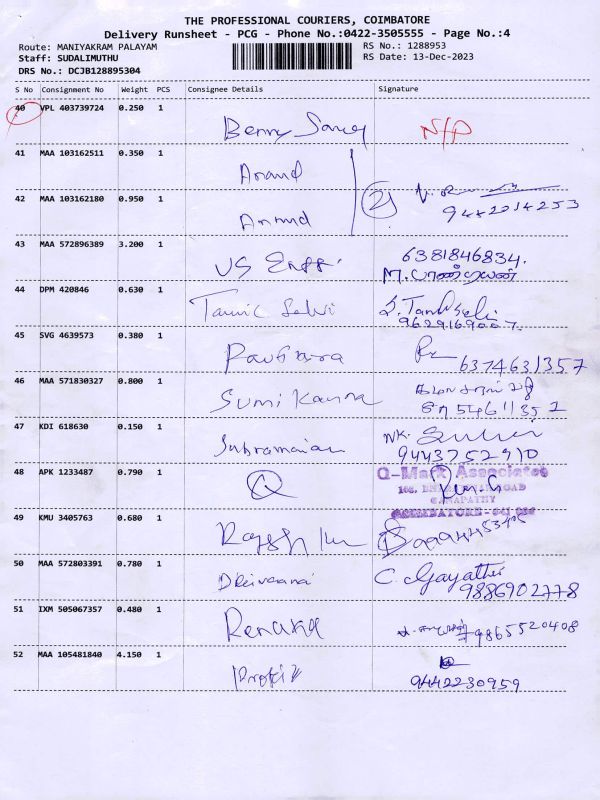 THE PROFESSIONAL COURIERS, COIMBATORE
Delivery Runsheet - PCG - Phone No.:0422-3505555 - Page No.:4
Route: MANIYAKRAM PALAYAM
RS No.: 1288953
Staff: SUDALIMUTHU
RS Date: 13-Dec-2023
DRS No.: DCJB128895304
S No Consignment No Weight PCS Consignee Details Signature
40 VPL 403739724 0.250 1
Benny N/P
41 MAA 103162511 0.350 1
Anand
42 MAA 103162180 0.950 1
Anand 2
43 MAA 572896389 3.200 1
6381846834.
US Engg. M. பாண்டியன்
44 DPM 420846 0.630 1
Tamil Selvi
9629169007.
45 SVG 4639573 0.380 1
6374631357
46 MAA 571830327 0.800 1
Sumi Kanna
47 KDI 618630 0.150 1
NK.
Subramanian 9443752910
48 APK 1233487 0.790 1
Q-Mark Associates
ROAD
GANAPATHY
COIMBATORE
49 KMU 3405763 0.680 1
Rajesh
50 MAA 572803391 0.780 1
C. Gayathri
Deivaanai 9886902778
51 IXM 505067357 0.480 1
Renuka 9865520408
52 MAA 105481840 4.150 1
9442230959